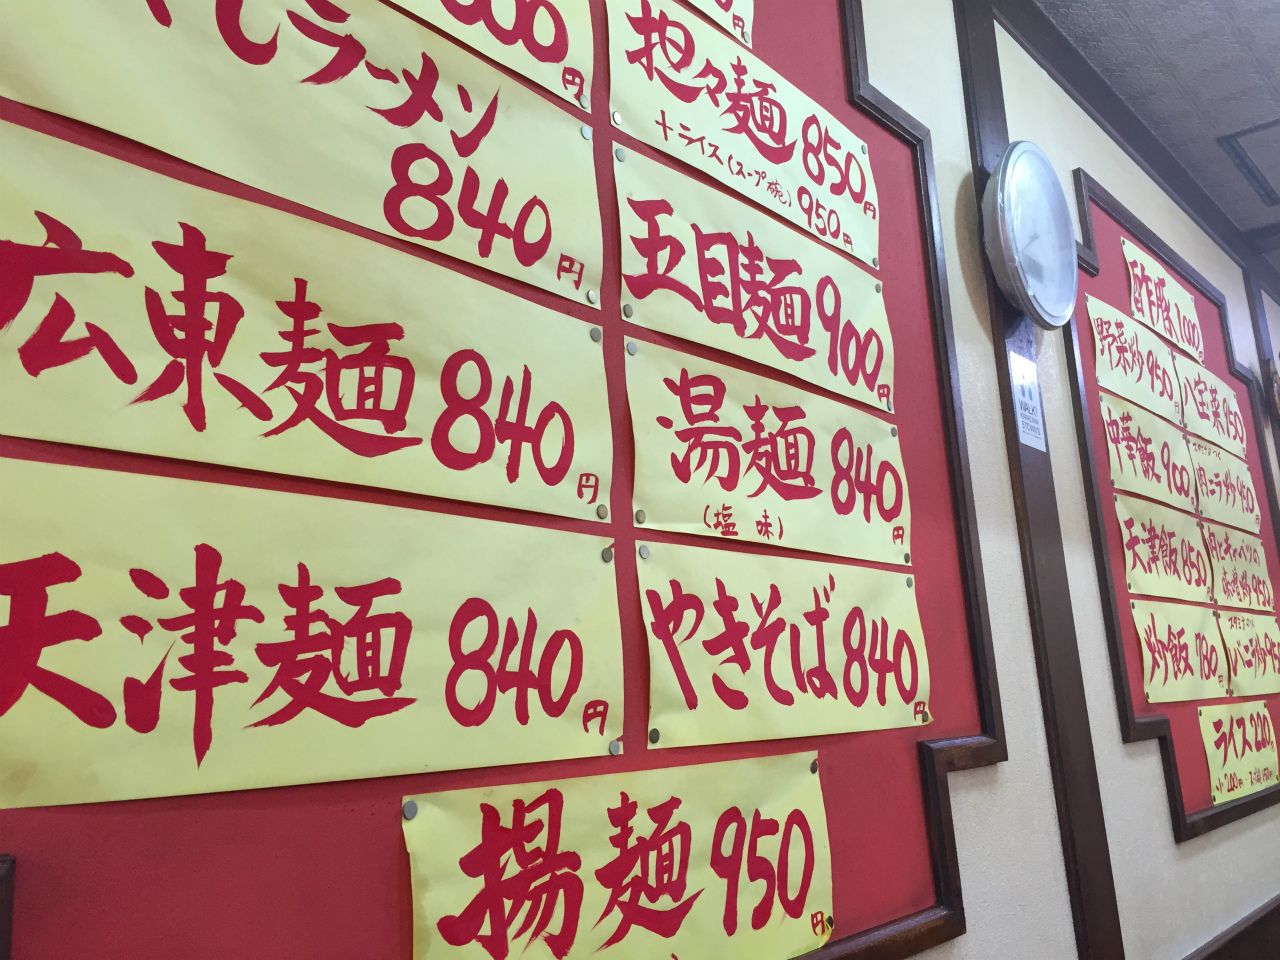 ラーメン
840円
広東麺 840円
天津麺 840円
00円
担々麺 850円
+ライス(スープ碗) 950円
五目麺 900円
湯麺 840円
(塩 味)
やきそば 840円
揚麺 950円
酢豚 1000円
野菜炒 950円
八宝菜 950
中華飯 900円
肉ニラ炒 950円
天津飯 850円
肉とキャベツの
味噌炒 950
炒飯 780円
レバニラ炒 950
ライス 220円
小200円
WALKY